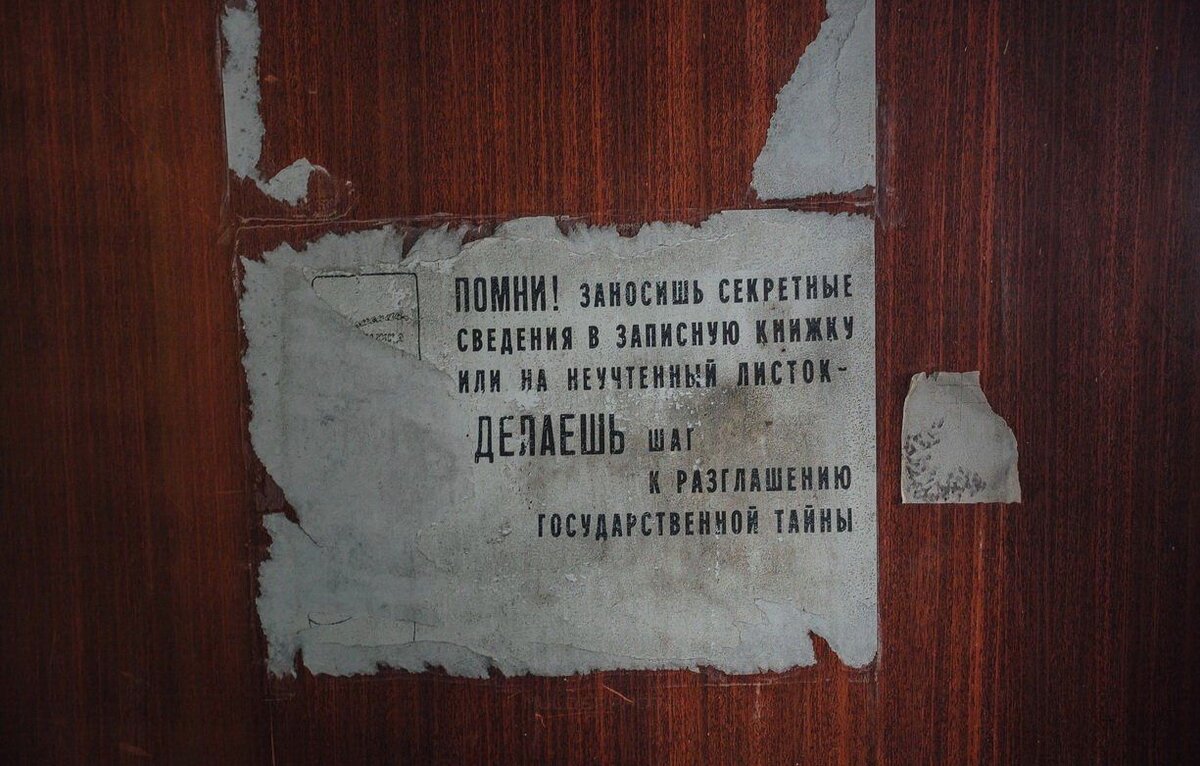 ПОМНИ! ЗАНОСИШЬ СЕКРЕТНЫЕ
СВЕДЕНИЯ В ЗАПИСНУЮ КНИЖКУ
ИЛИ НА НЕУЧТЕННЫЙ ЛИСТОК-
ДЕЛАЕШЬ ШАГ
К РАЗГЛАШЕНИЮ
ГОСУДАРСТВЕННОЙ ТАЙНЫ